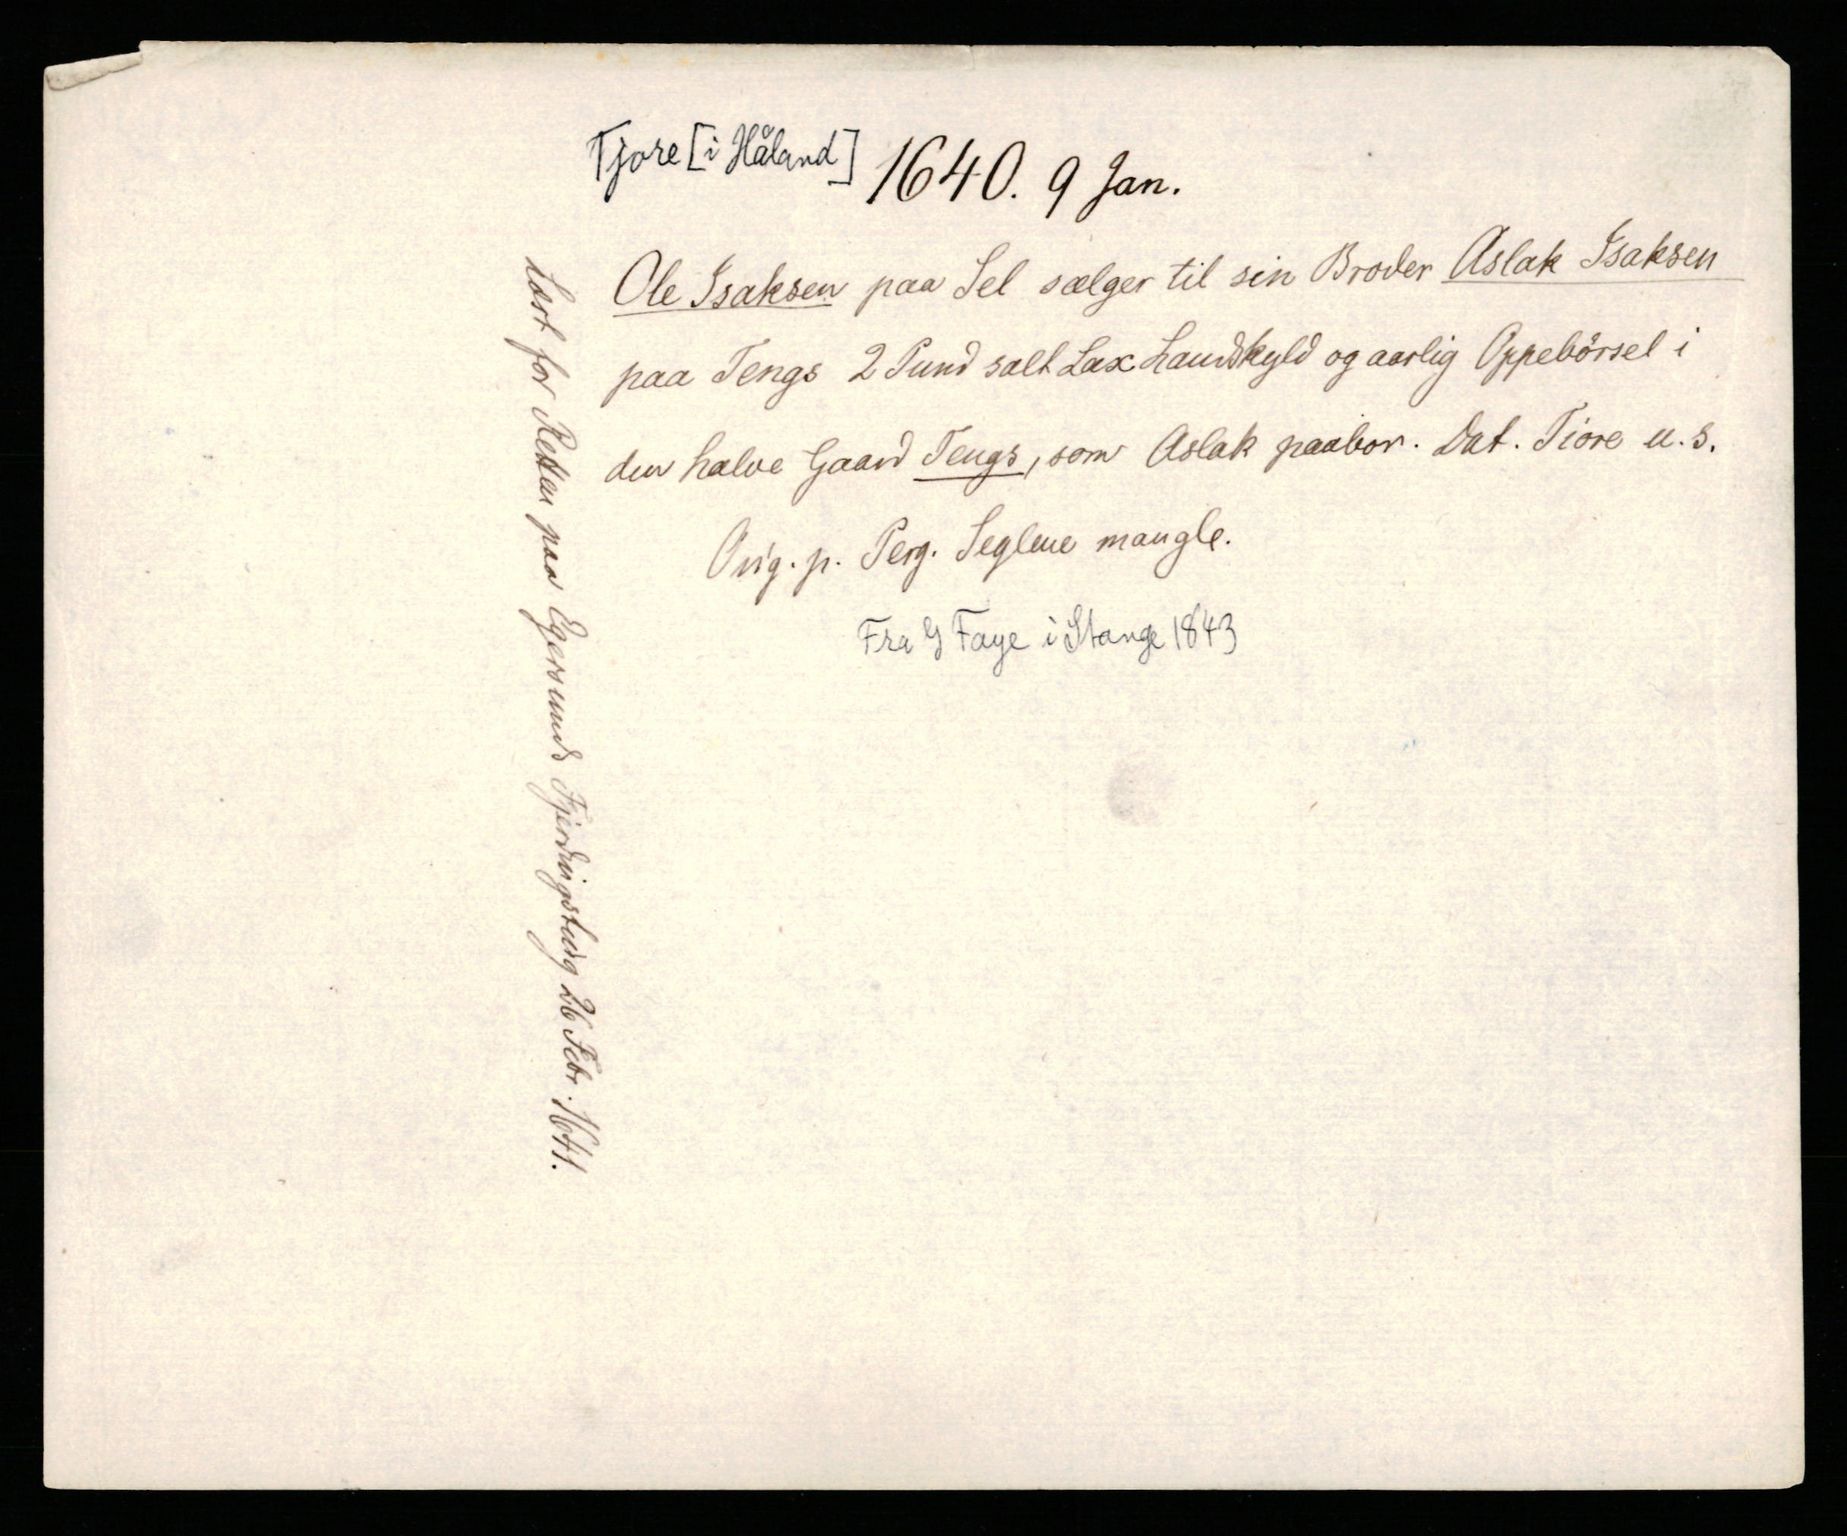 Tjore [i Håland] 1640. 9 Jan.
Ole Isaksen paa Sel sælger til sin Broder Aslak Isaksen
paa Tengs 2 Pund salt Lax Landskyld og aarlig Oppebörsel i
den halve Gaard Tengs, som Aslak paabor. Dat. Tiore u. s.
Orig. p. Perg. Seglene mangle.
Fra G Faye i Stange 1843
Læst for Retten paa Egersunds Fjerdingsting 26 Febr. 1641.